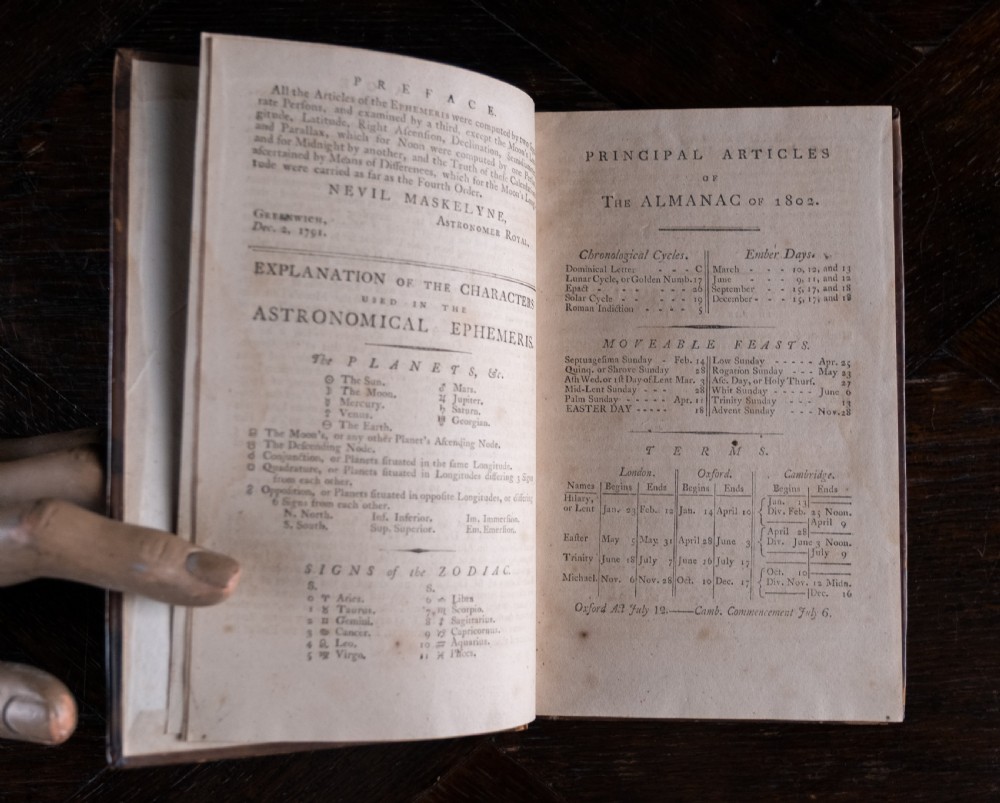 PREFACE.
All the Articles of the EPHEMERIS were computed by two
rate Perſons, and examined by a third, except the Moon's
gitude, Latitude, Right Aſcenſion, Declination,
and Parallax, which for Noon were computed by one
and for Midnight by another, and the Truth of theſe
aſcertained by Means of Differences, which for the Moon's
tude were carried as far as the Fourth Order.
NEVIL MASKELYNE,
ASTRONOMER ROYAL.
GREENWICH,
Dec. 2, 1791.
EXPLANATION OF THE CHARACTERS
USED IN THE
ASTRONOMICAL EPHEMERIS.
The PLANETS, &c.
☉ The Sun. ♂ Mars.
☽ The Moon. ♃ Jupiter.
☿ Mercury. ♄ Saturn.
♀ Venus. Georgian.
The Earth.
☊ The Moon's, or any other Planet's Aſcending Node.
☋ The Deſcending Node.
☌ Conjunction, or Planets ſituated in the ſame Longitude.
Quadrature, or Planets ſituated in Longitudes differing 3 Signs
from each other.
☍ Oppoſition, or Planets ſituated in oppoſite Longitudes, or differing
6 Signs from each other.
N. North. Inf. Inferior. Im. Immerſion.
S. South. Sup. Superior. Em. Emerſion.
SIGNS of the ZODIAC.
S. S.
0 ♈ Aries. 6 ♎ Libra
1 ♉ Taurus. 7 ♏ Scorpio.
2 ♊ Gemini. 8 ♐ Sagittarius.
3 ♋ Cancer. 9 ♑ Capricornus.
4 ♌ Leo. 10 ♒ Aquarius.
5 ♍ Virgo. 11 ♓ Piſces.
PRINCIPAL ARTICLES
OF
THE ALMANAC OF 1802.
Chronological Cycles. Ember Days.
Dominical Letter - - - C March - - - 10, 12, and 13
Lunar Cycle, or Golden Numb. 17 June - - - 9, 11, and 12
Epact - - - - - 26 September - - 15, 17, and 18
Solar Cycle - - - - 19 December - - - 15, 17, and 18
Roman Indiction - - - 5
MOVEABLE FEASTS.
Septuageſima Sunday - Feb. 14 Low Sunday - - - - - Apr. 25
Quinq. or Shrove Sunday 28 Rogation Sunday - - - May 23
Aſh Wed. or 1ſt Day of Lent Mar. 3 Aſc. Day, or Holy Thurſ. 27
Mid-Lent Sunday - - - 28 Whit Sunday - - - - June 6
Palm Sunday - - - Apr. 11 Trinity Sunday - - - 13
EASTER DAY - - - - - 18 Advent Sunday - - - Nov. 28
TERMS.
London. Oxford. Cambridge.
Names Begins Ends Begins Ends Begins Ends
Hilary, or Lent Jan. 23 Feb. 12 Jan. 14 April 10 Jan. 13
Div. Feb. 25 Noon.
April 9
Eaſter May 5 May. 31 April 28 June 3 April 28
Div. June 3 Noon.
July 9
Trinity June 18 July 7 June 16 July 17
Michael. Nov. 6 Nov. 28 Oct. 10 Dec. 17 Oct. 10
Div. Nov. 12 Midn.
Dec. 16
Oxford Act July 12.——Camb. Commencement July 6.